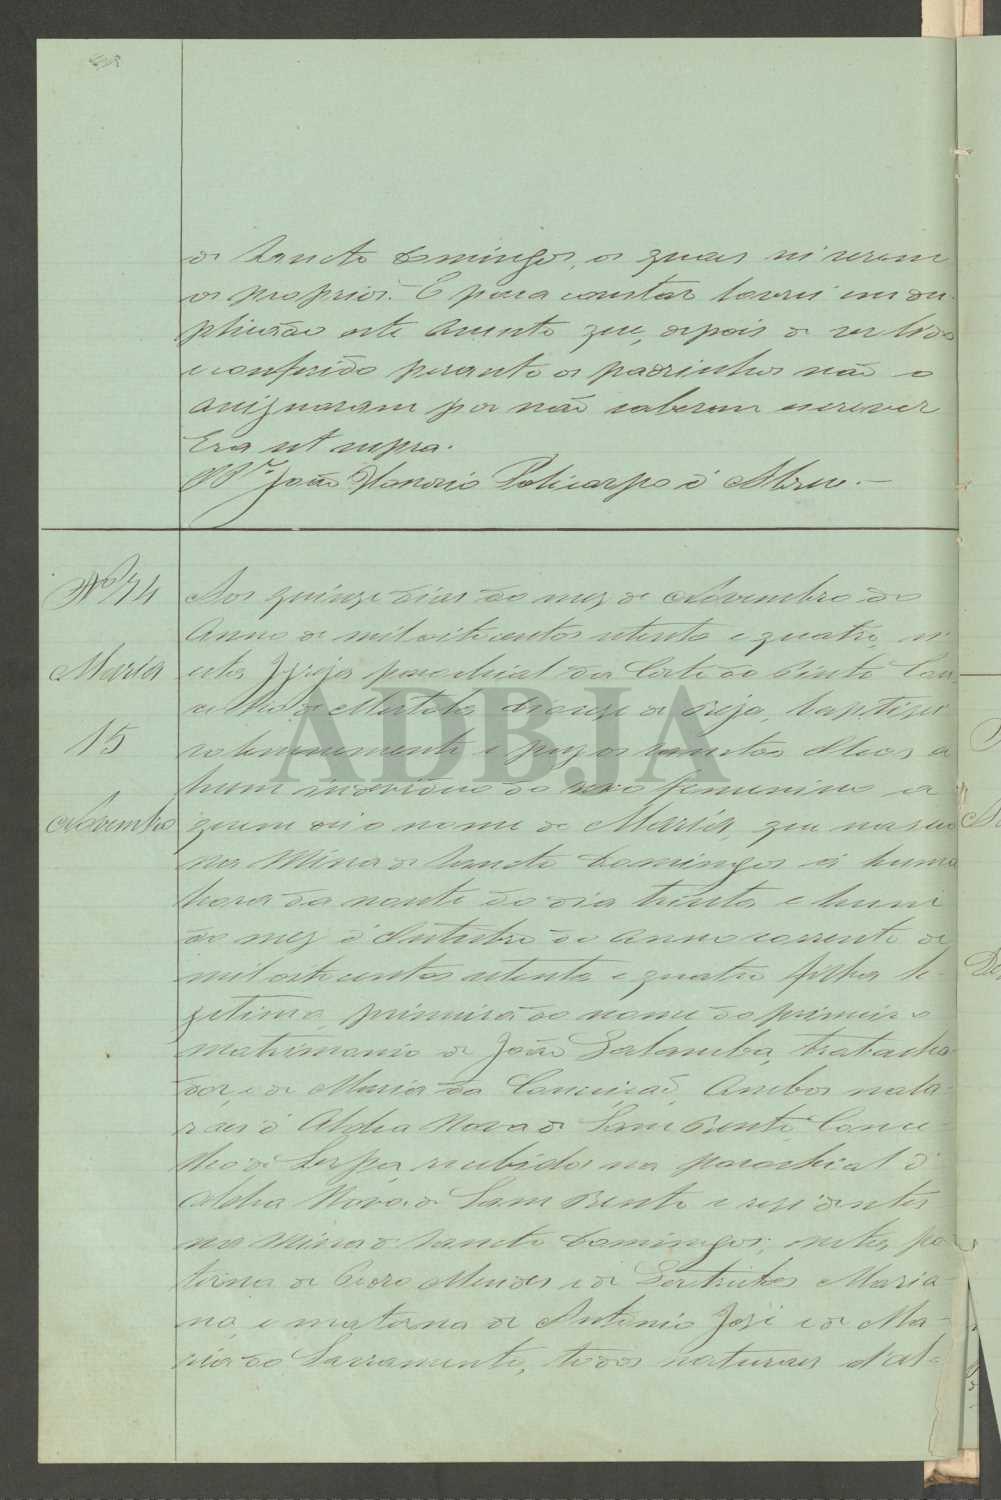 de Sancto Domingos, os quaes sei serem
os proprios. E para constar lavrei em du-
plicado este assento que, depois de ser lido
e conferido perante os padrinhos não o
assignaram por não saberem escrever
Era ut supra.
João Honorio Policarpo d' Abreu.
Nº 74
Maria
15
Novembro
Aos quinze dias do mez de Novembro do
Anno de mil oitocentos setenta e quatro, n'
esta Igreja parochial da Corte do Pinto Con-
celho de Mertola Diocese de Beja, baptizei
solemnemente e puz os sanctos Oleos a
hum individuo do sexo femenino a
quem dei o nome de Maria, que nasceu
na Mina de Sancto Domingos á huma
hora da noute do dia trinta e hum
do mez d' Outubro do Anno corrente de
mil oitocentos setenta e quatro filha le-
gitima, primeira do nome do primeiro
matrimonio de João Galamba, trabalha-
dor, e de Maria da Conceição, Ambos natu-
raes d' Aldea Nova de Sam Bento Conce-
lho de Serpa, recebidos na parochial d'
Aldea Nova de Sam Bento e residentes
na Mina de Sancto Domingos; neta pa-
terna de Pedro Mendes e de Gertrudes Maria-
na, e materna de Antonio José e de Ma-
ria do Sacramento, todos naturaes d'Al-
ADBJA